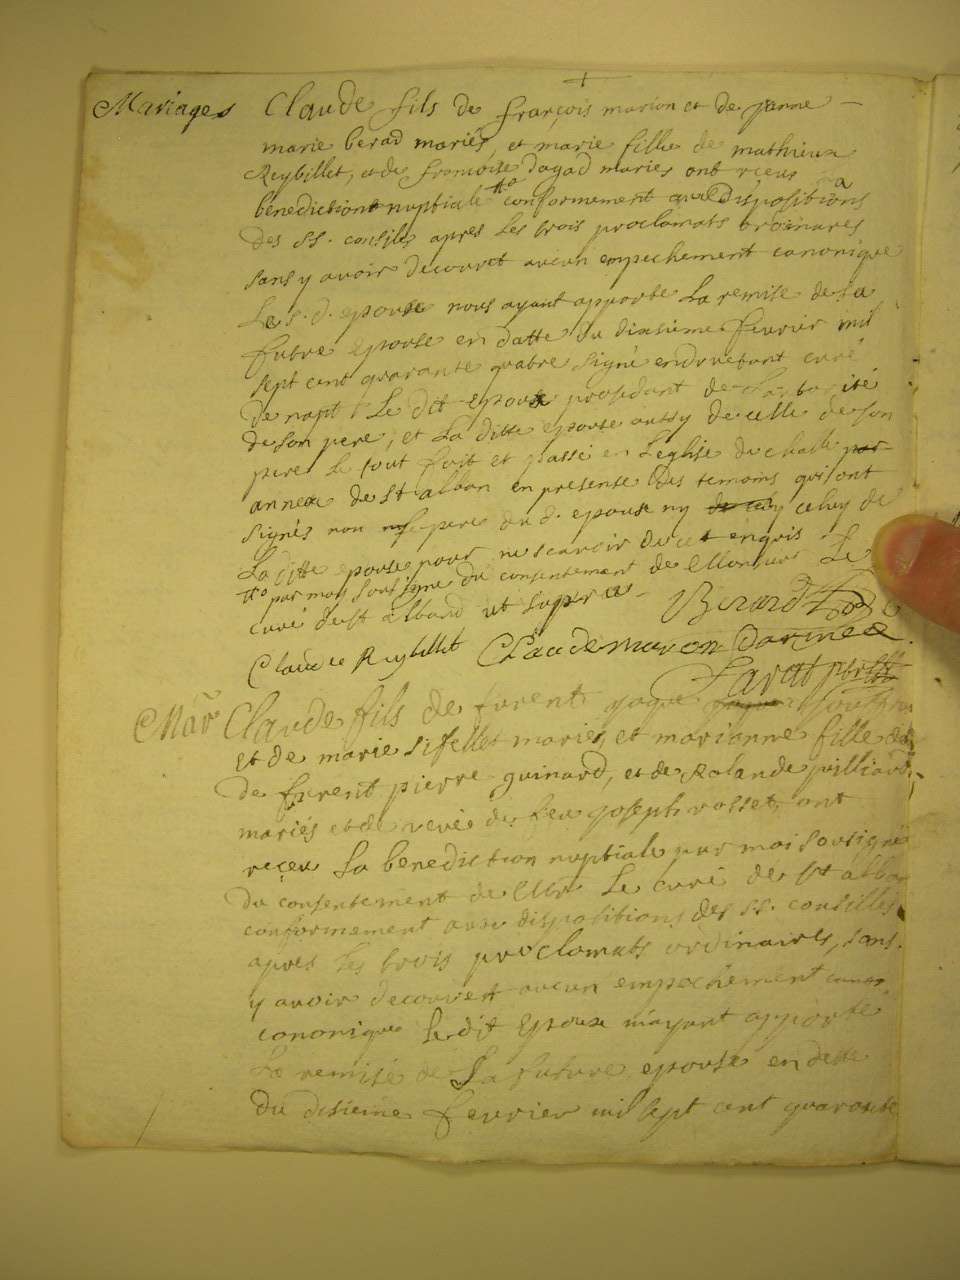 Mariages
Claude fils de françois marion et de janne
marie berad mariés, et marie fille de mathieux
Reybillet, et de francoise dagad mariés ont rceus la
benediction nuptiale conformement aux dispositions
des SS. consiles apres les trois proclamats ordinares
sans y avoir decouvert aucun empechement canonique
Le s. d. epouse nous ayant apporte La remise de la
future epouse en datte du dixsieme fevrier mil
sept cent quarante quatre signé curé
de napt Le dit epoux procedant de Lautorité
de son pere, et La ditte epouse aussy de celle de son
pere Le tout fait et passé en Leglise de challe
annexe de st alban en presense des temoins qui ont
signés non pere du d. epouse ny celuy de
La ditte epouse pour ne scavoir de ce enquis
par moy soussigné du consentement de Monsieur Le
curé de st alband ut supra
Berard
Claude Reybillet Claude marion Darmee
Mar Claude fils de furent jaque
et de marie sifellet mariés, et marianne fille
de furent pierre guinard, et de Rolande juilliard
mariés et de veve de feu joseph rosset, ont
reçeu La benediction nuptiale par moi sousigné
du consentement de Mr Le curé de St alban
conformement aux dispositions des SS. consilles
apres les trois proclamats ordinaires, sans
y avoir decouvert aucun empechement
cononique Le dit Epoux m'ayant apporté
La remise de La future epouse en date
du disieme fevrier mil sept cent quarante